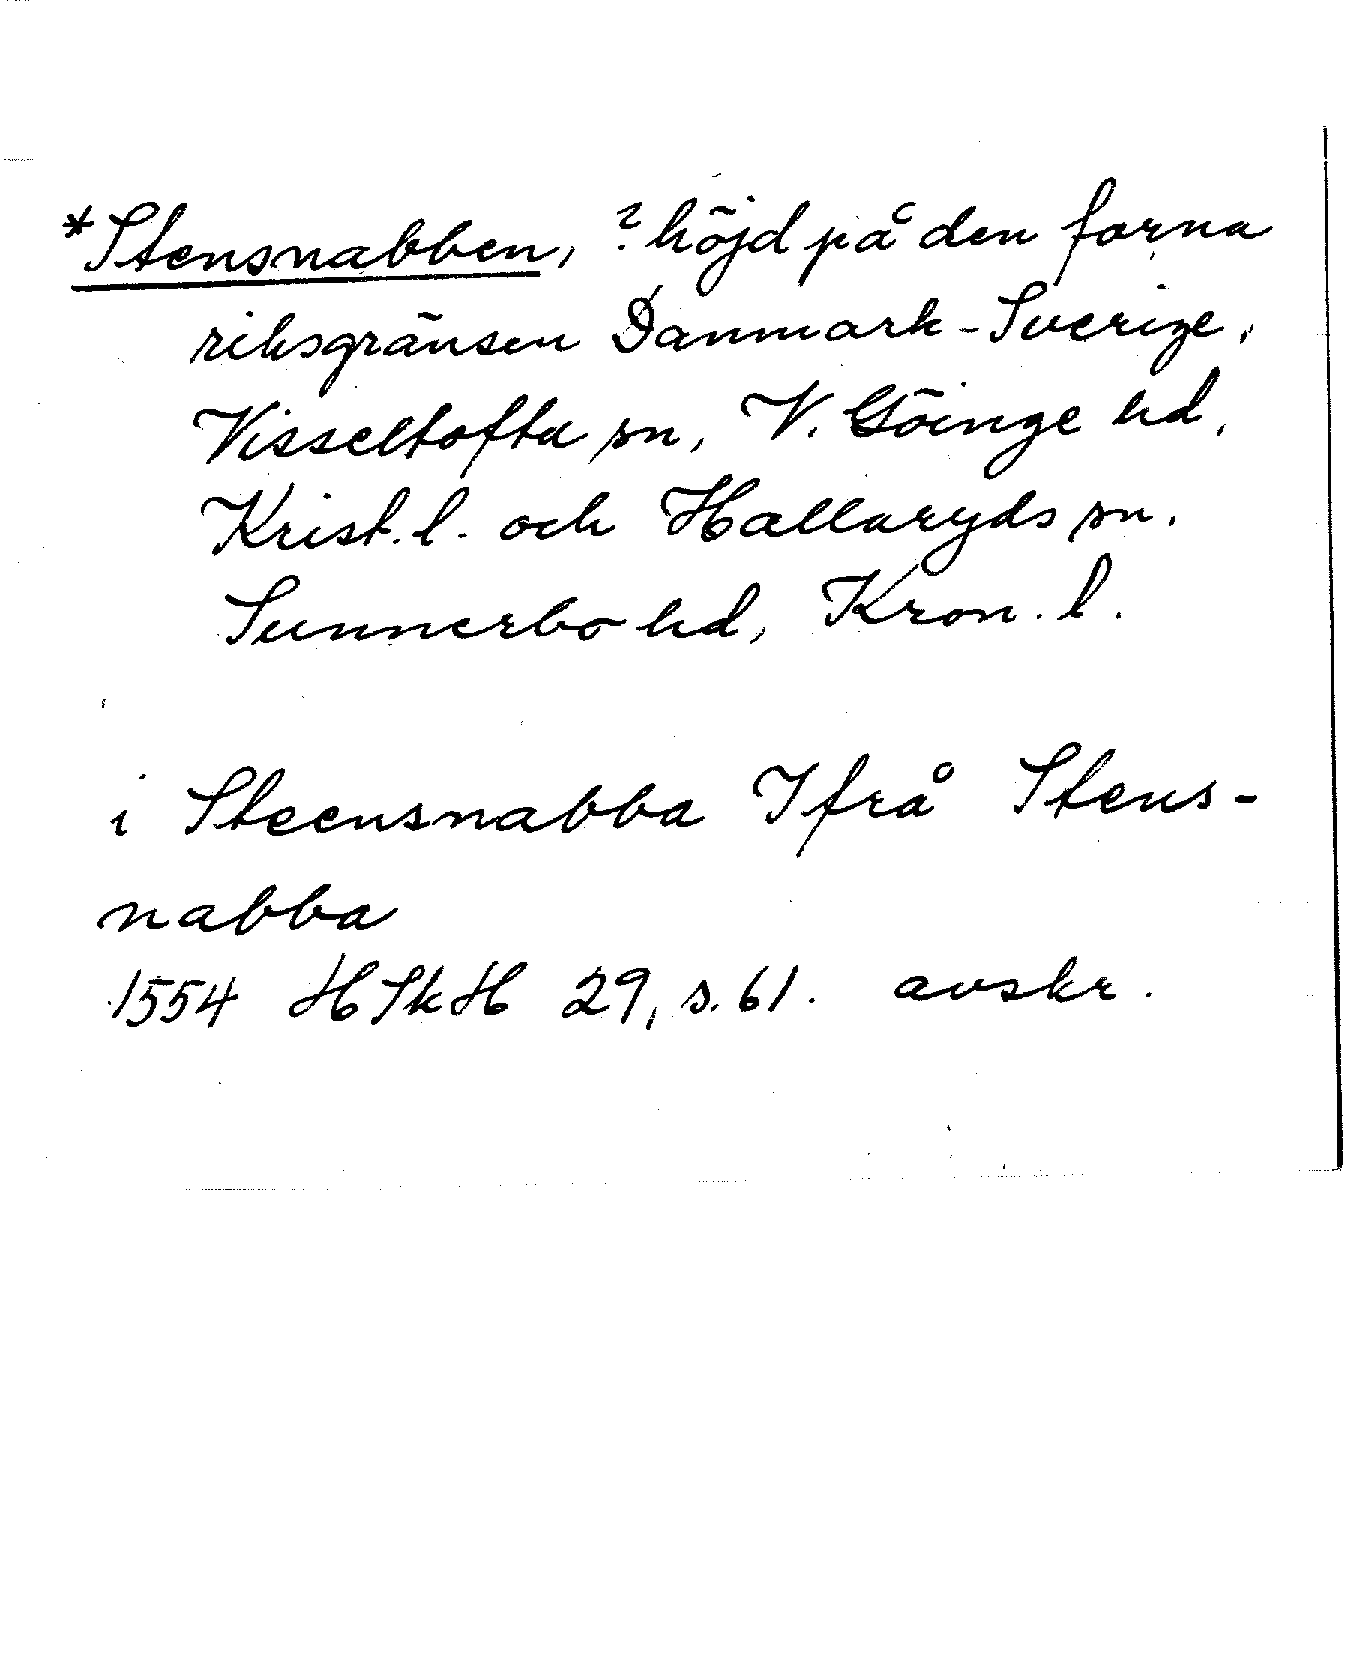 *Stensnabben, ? höjd på den forna
riksgränsen Danmark-Sverige,
Visseltofta sn, V. Göinge hd,
Krist. l. och Hallaryds sn.
Sunnerbo hd, Kron. l.
i Steensnabba Ifrå Stens-
nabba
1554 HSkH 29, s. 61. avskr.